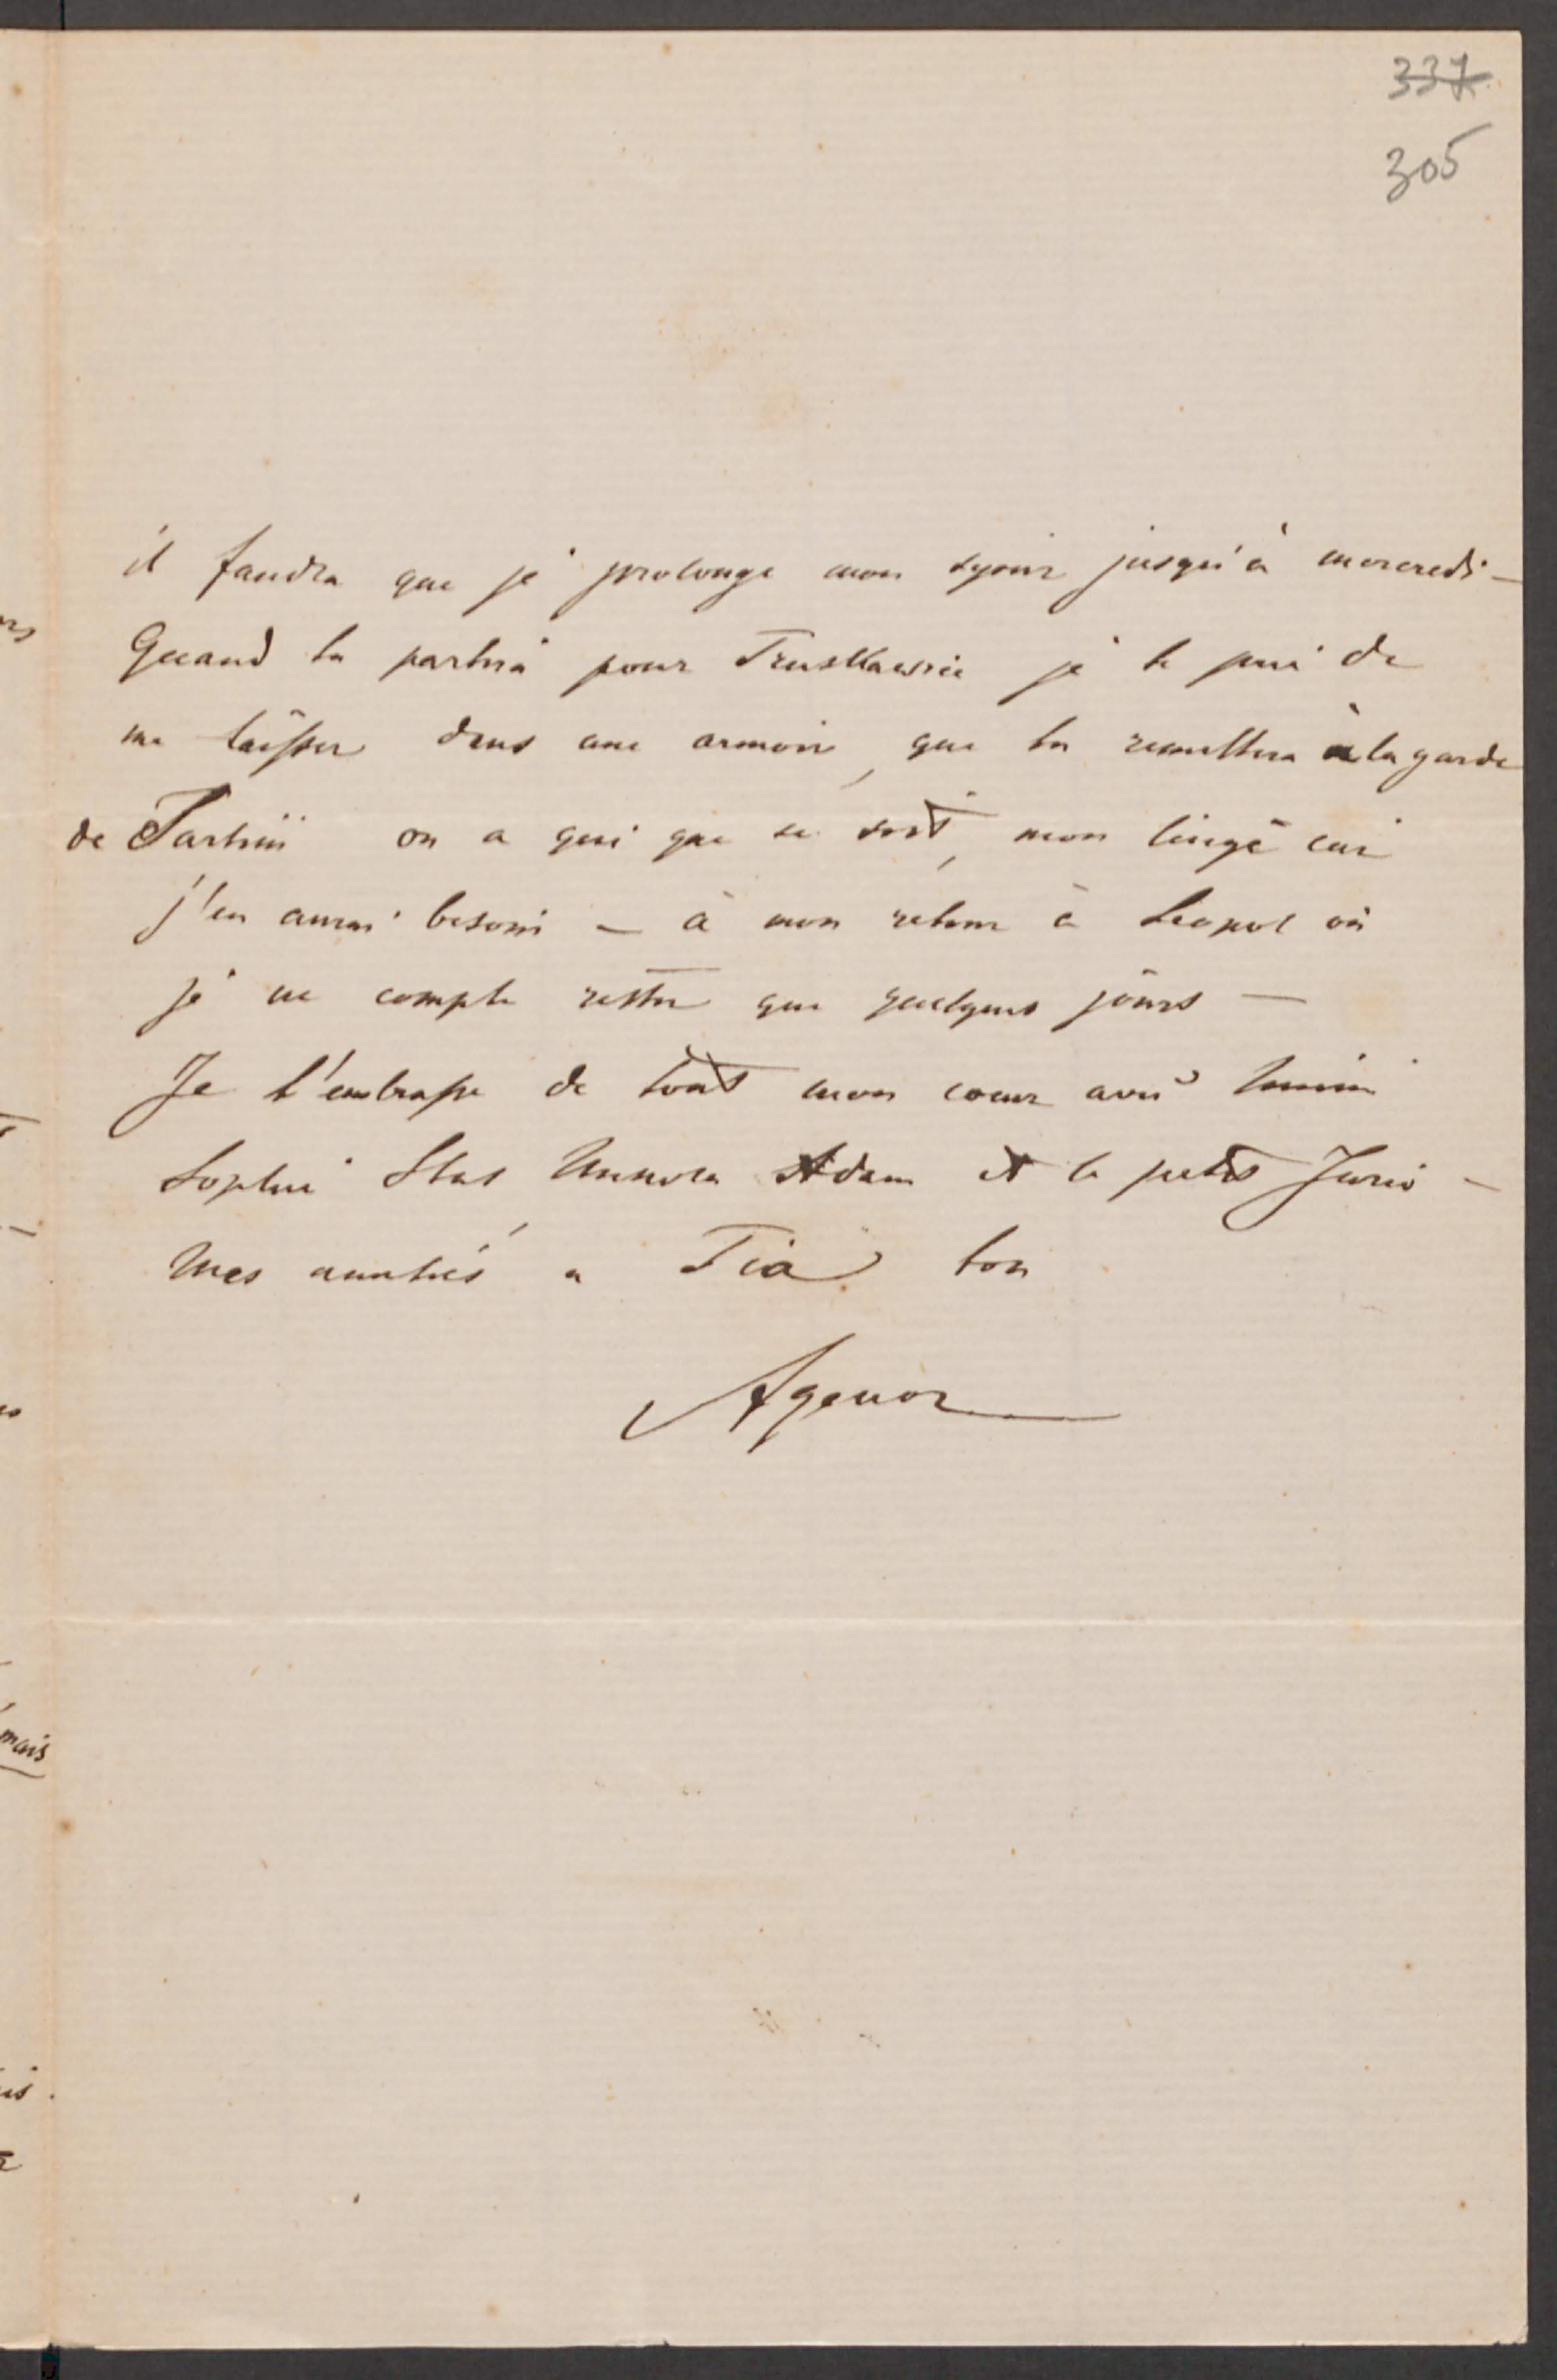 337
305
il faudra que je prolonge mon séjour jusqu'à mercredi —
Quand tu partira pour Truskawiec je te prie de
me laisser dans une armoire, que tu remettra à la garde
de ou a qui que ce soit, mon linge car
j'en aurai besoin — à mon retour à Leopol où
je ne compte rester que quelques jours —
Je t'embrasse de tout mon coeur avec Mimi
Sophie Stas Adam et le petit Jurio —
Mes amitiés a Tia ton
Agenor
mais